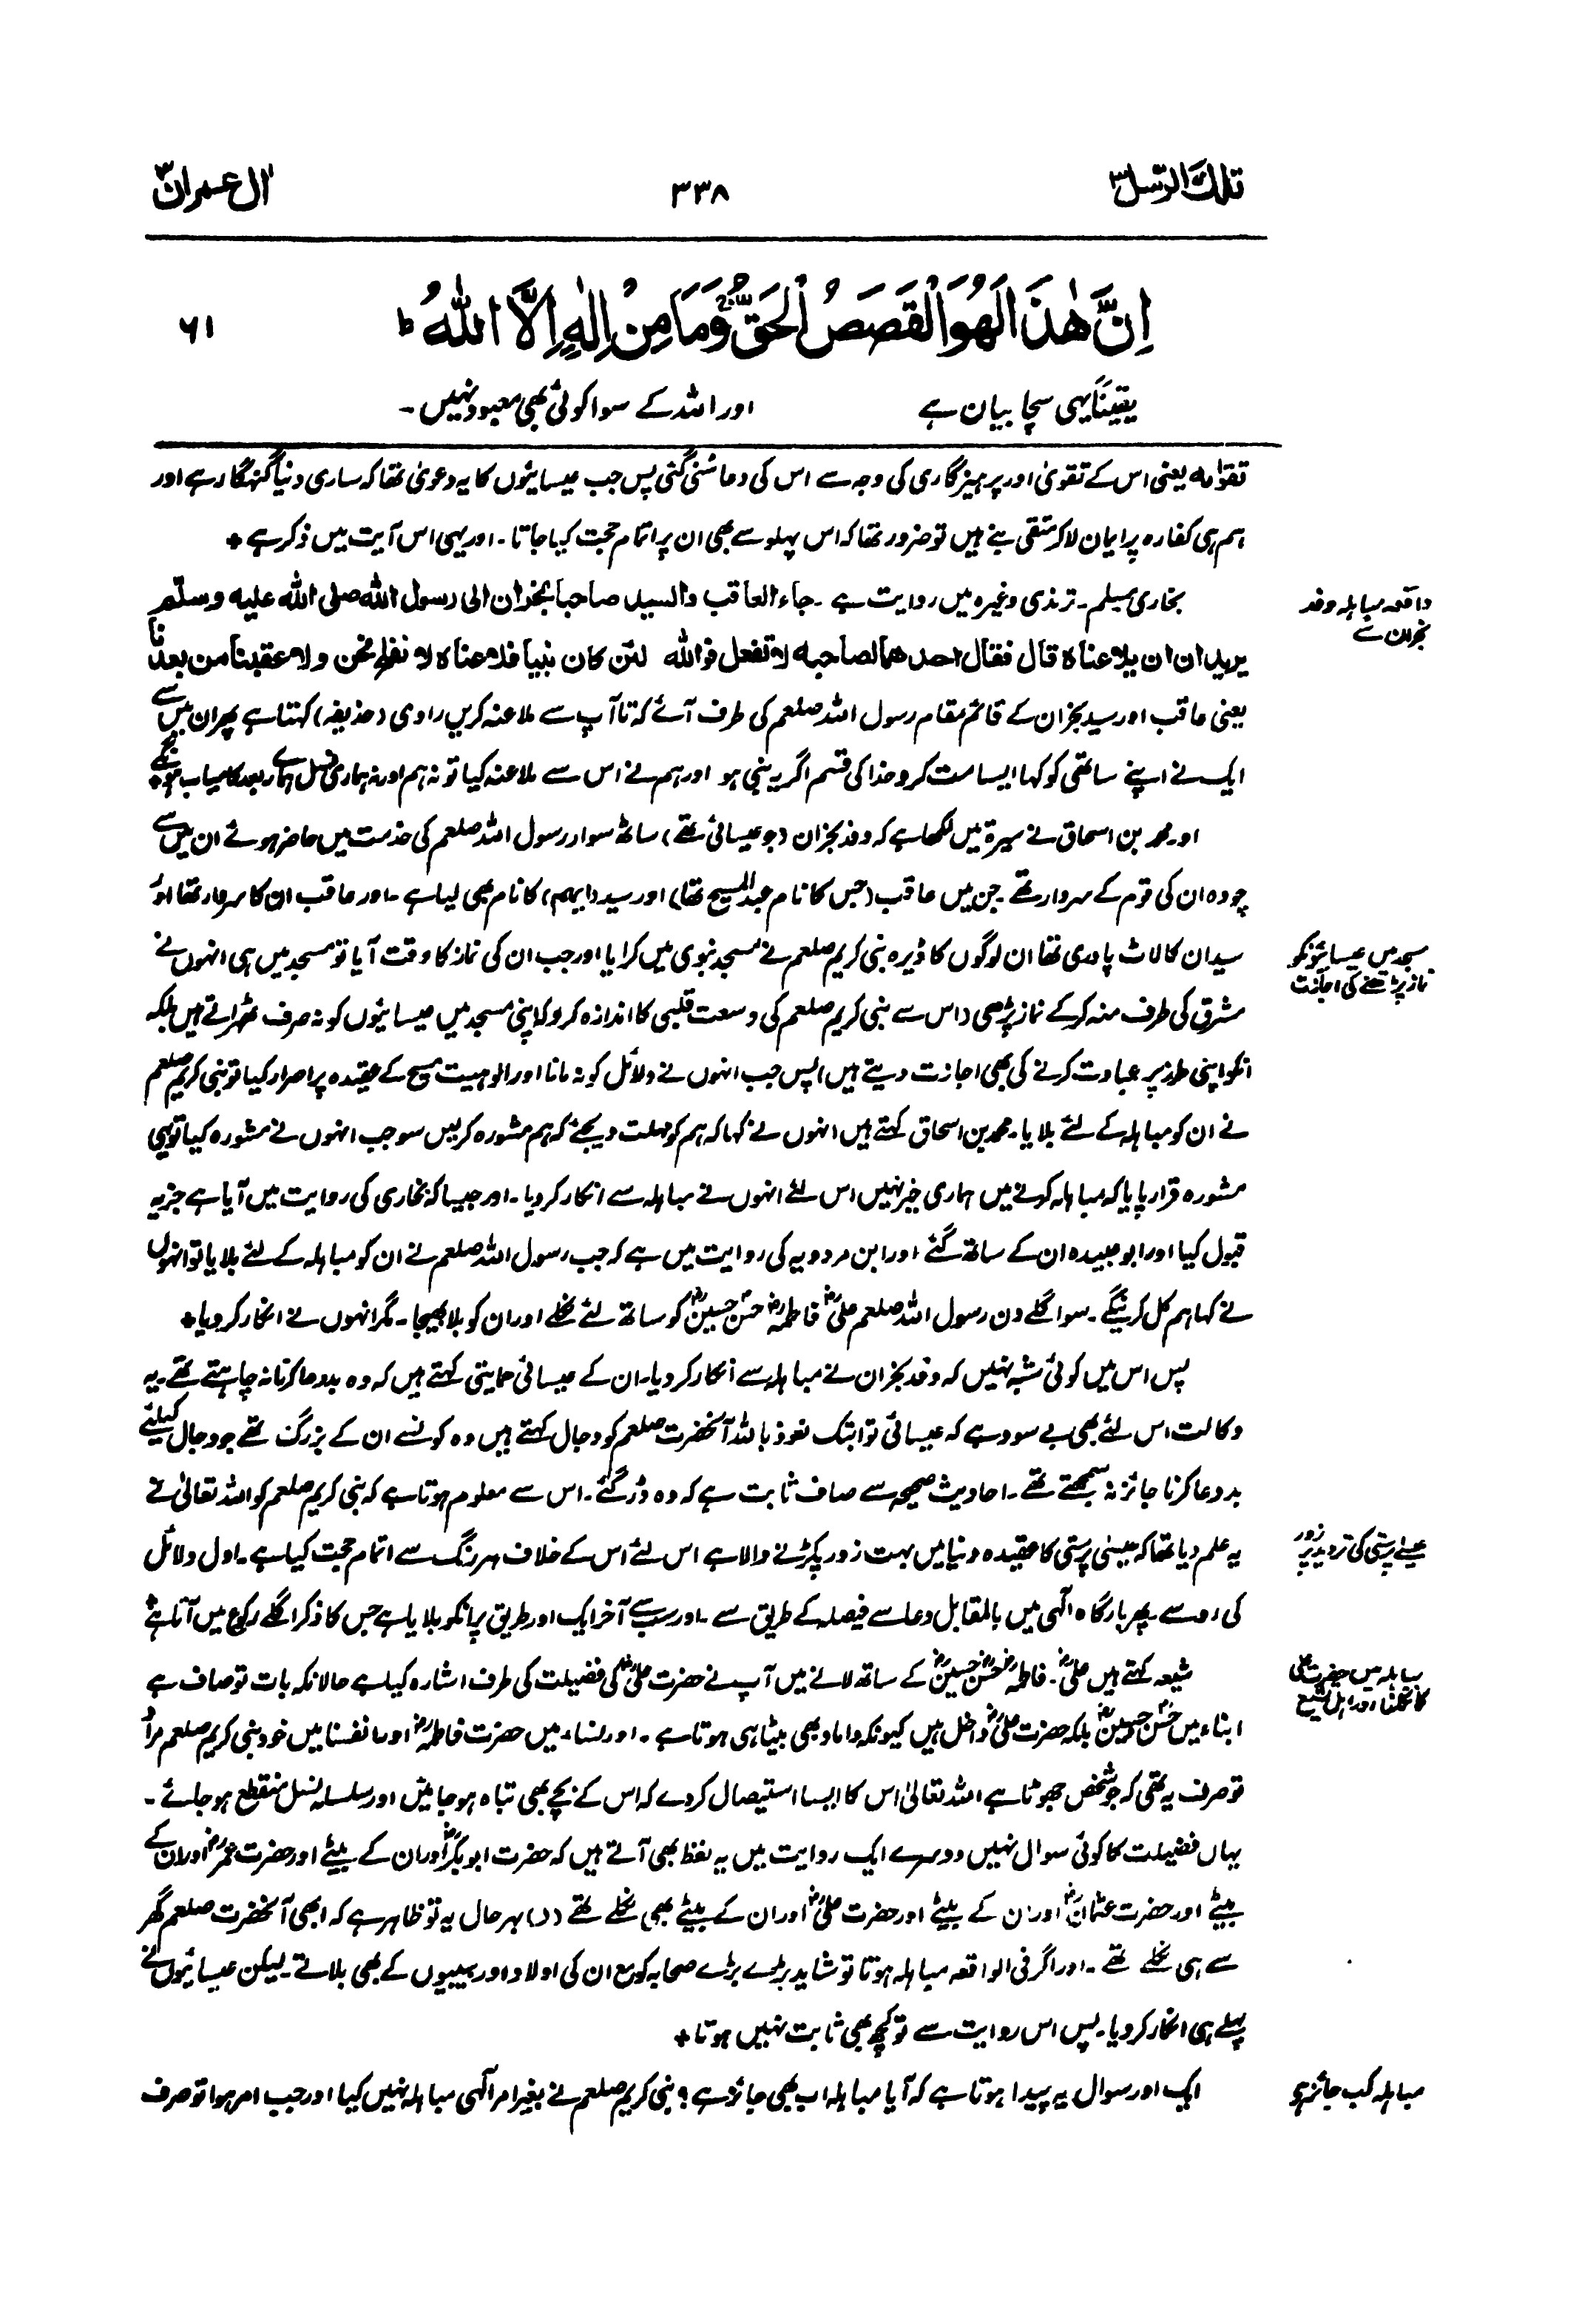 تلك الرسل ٣
٣٣٨
اٰل عمران ٣
اِنَّ هٰذَا لَهُوَ الْقَصَصُ الْحَقُّ ۚ وَمَا مِنْ اِلٰهٍ اِلَّا اللّٰهُ ؕ
٦١
یقیناً یہی سچا بیان ہے
اور اللہ کے سوا کوئی بھی معبود نہیں ۔
یعنی اس کے تقویٰ اور پرہیزگاری کی وجہ سے اس کی دعا سُنی گئی پس جب عیسائیوں کا یہ دعویٰ تھا کہ ساری دنیا گنہگار ہے اور
ہم ہی کفارہ پر ایمان لا کر متقی بنے ہیں تو ضرور تھا کہ اس پہلو سے بھی ان پر اتمام حجت کیا جاتا ۔ اور یہی اس آیت میں ذکر ہے +
واقعہ مباہلہ وفد
نجران سے
بخاری مسلم ۔ ترمذی وغیرہ میں روایت ہے ۔ جاء العاقب والسید صاحبا نجران الی رسول اللہ صلی اللہ علیہ وسلم
یریدان ان یلاعناہ قال فقال احدھما لصاحبہ لا تفعل فواللہ لئن کان نبیا فلاعناہ لا نفلح نحن ولا عقبنا من بعدنا
یعنی عاقب اور سید نجران کے قائم مقام رسول اللہ صلعم کی طرف آئے کہ تا آپ سے ملاعنہ کریں راوی (حذیفہ) کہتا ہے پھر ان میں سے
ایک نے اپنے ساتھی کو کہا ایسا مت کرو خدا کی قسم اگر یہ نبی ہو اور ہم نے اس سے ملاعنہ کیا تو نہ ہم اور نہ ہماری نسل ہمارے بعد کامیاب ہونگے +
اور محمد بن اسحاق نے سیرۃ میں لکھا ہے کہ وفد نجران (جو عیسائی تھے) ساٹھ سوار رسول اللہ صلعم کی خدمت میں حاضر ہوئے ان میں سے
چودہ ان کی قوم کے سردار تھے جن میں عاقب (جس کا نام عبدالمسیح تھا) اور سید (ایہم) کا نام بھی لیا ہے ۔ اور عاقب ان کا سردار تھا اور
مسجد میں عیسائیونکو
نماز پڑھنے کی اجازت
سید ان کا لاٹ پادری تھا ان لوگوں کا ڈیرہ نبی کریم صلعم نے مسجد نبوی میں کرایا اور جب ان کی نماز کا وقت آیا تو مسجد میں ہی انہوں نے
مشرق کی طرف منہ کر کے نماز پڑھی (اس سے نبی کریم صلعم کی وسعت قلبی کا اندازہ کرو کہ اپنی مسجد میں عیسائیوں کو نہ صرف ٹھہراتے ہیں بلکہ
انکو اپنی طرز پر عبادت کرنے کی بھی اجازت دیتے ہیں) پس جب انہوں نے دلائل کو نہ مانا اور الوہیت مسیح کے عقیدہ پر اصرار کیا تو نبی کریم صلعم
نے ان کو مباہلہ کے لئے بلایا ۔ محمد بن اسحاق کہتے ہیں انہوں نے کہا کہ ہم کو مہلت دیجئے کہ ہم مشورہ کر لیں سو جب انہوں نے مشورہ کیا تو یہی
مشورہ قرار پایا کہ مباہلہ کرنے میں ہماری خیر نہیں اس لئے انہوں نے مباہلہ سے انکار کر دیا ۔ اور جیسا کہ بخاری کی روایت میں آیا ہے جزیہ
قبول کیا اور ابو عبیدہ ان کے ساتھ گئے اور ابن مردویہ کی روایت میں ہے کہ جب رسول اللہ صلعم نے ان کو مباہلہ کے لئے بلایا تو انہوں
نے کہا ہم کل کرینگے ۔ سو اگلے دن رسول اللہ صلعم علیؓ فاطمہؓ حسنؓ حسینؓ کو ساتھ لئے نکلے اور ان کو بلا بھیجا ۔ مگر انہوں نے انکار کر دیا +
پس اس میں کوئی شبہ نہیں کہ وفد نجران نے مباہلہ سے انکار کر دیا ۔ ان کے عیسائی حمایتی کہتے ہیں کہ وہ بددعا کرنا نہ چاہتے تھے ۔ یہ
وکالت اس لئے بھی بے سود ہے کہ عیسائی تو ابتک نعوذ باللہ آنحضرت صلعم کو دجال کہتے ہیں وہ کونسے ان کے بزرگ تھے جو دجال کیلئے
بددعا کرنا جائز نہ سمجھتے تھے ۔ احادیث صحیحہ سے صاف ثابت ہے کہ وہ ڈر گئے ۔ اس سے معلوم ہوتا ہے کہ نبی کریم صلعم کو اللہ تعالیٰ نے
عیسےٰ پرستی کی تردید پر زور
یہ علم دیا تھا کہ عیسیٰ پرستی کا عقیدہ دنیا میں بہت زور پکڑنے والا ہے اس لئے اس کے خلاف ہر رنگ سے اتمام حجت کیا ہے ۔ اول دلائل
کی رو سے ۔ پھر بارگاہ الٰہی میں بالمقابل دعا سے فیصلہ کے طریق سے ۔ اور سب سے آخر ایک اور طریق پر انکو بلایا ہے جس کا ذکر اگلے رکوع میں آتا ہے +
مباہلہ میں حضرت علی
کا نکلنا اور اہل تشیع
شیعہ کہتے ہیں علیؓ ۔ فاطمہؓ حسنؓ حسینؓ کے ساتھ لانے میں آپ نے حضرت علیؓ کی فضیلت کی طرف اشارہ کیا ہے حالانکہ بات تو صاف ہے
ابناء میں حسنؓ حسینؓ بلکہ حضرت علیؓ داخل ہیں کیونکہ داماد بھی بیٹا ہی ہوتا ہے ۔ اور نساء میں حضرت فاطمہؓ اور انفسنا میں خود نبی کریم صلعم مراد
تو صرف یہ تھی کہ جو شخص جھوٹا ہے اللہ تعالیٰ اس کا ایسا استیصال کر دے کہ اس کے بچے بھی تباہ ہو جائیں اور سلسلہ نسل منقطع ہو جائے ۔
یہاں فضیلت کا کوئی سوال نہیں دوسرے ایک روایت میں یہ لفظ بھی آتے ہیں کہ حضرت ابوبکرؓ اور ان کے بیٹے اور حضرت عمرؓ اور ان کے
بیٹے اور حضرت عثمانؓ اور ان کے بیٹے اور حضرت علیؓ اور ان کے بیٹے بھی نکلے تھے (د) بہرحال یہ تو ظاہر ہے کہ ابھی آنحضرت صلعم گھر
سے ہی نکلے تھے ۔ اور اگر فی الواقعہ مباہلہ ہوتا تو شاید بڑے بڑے صحابہ کو مع ان کی اولاد اور بیبیوں کے بھی بلاتے ۔ لیکن عیسائیوں نے
پہلے ہی انکار کر دیا ۔ پس اس روایت سے تو کچھ بھی ثابت نہیں ہوتا +
مباہلہ کب جائز ہے
ایک اور سوال یہ پیدا ہوتا ہے کہ آیا مباہلہ اب بھی جائز ہے ؟ نبی کریم صلعم نے بغیر امر الٰہی مباہلہ نہیں کیا اور جب امر ہوا تو صرف